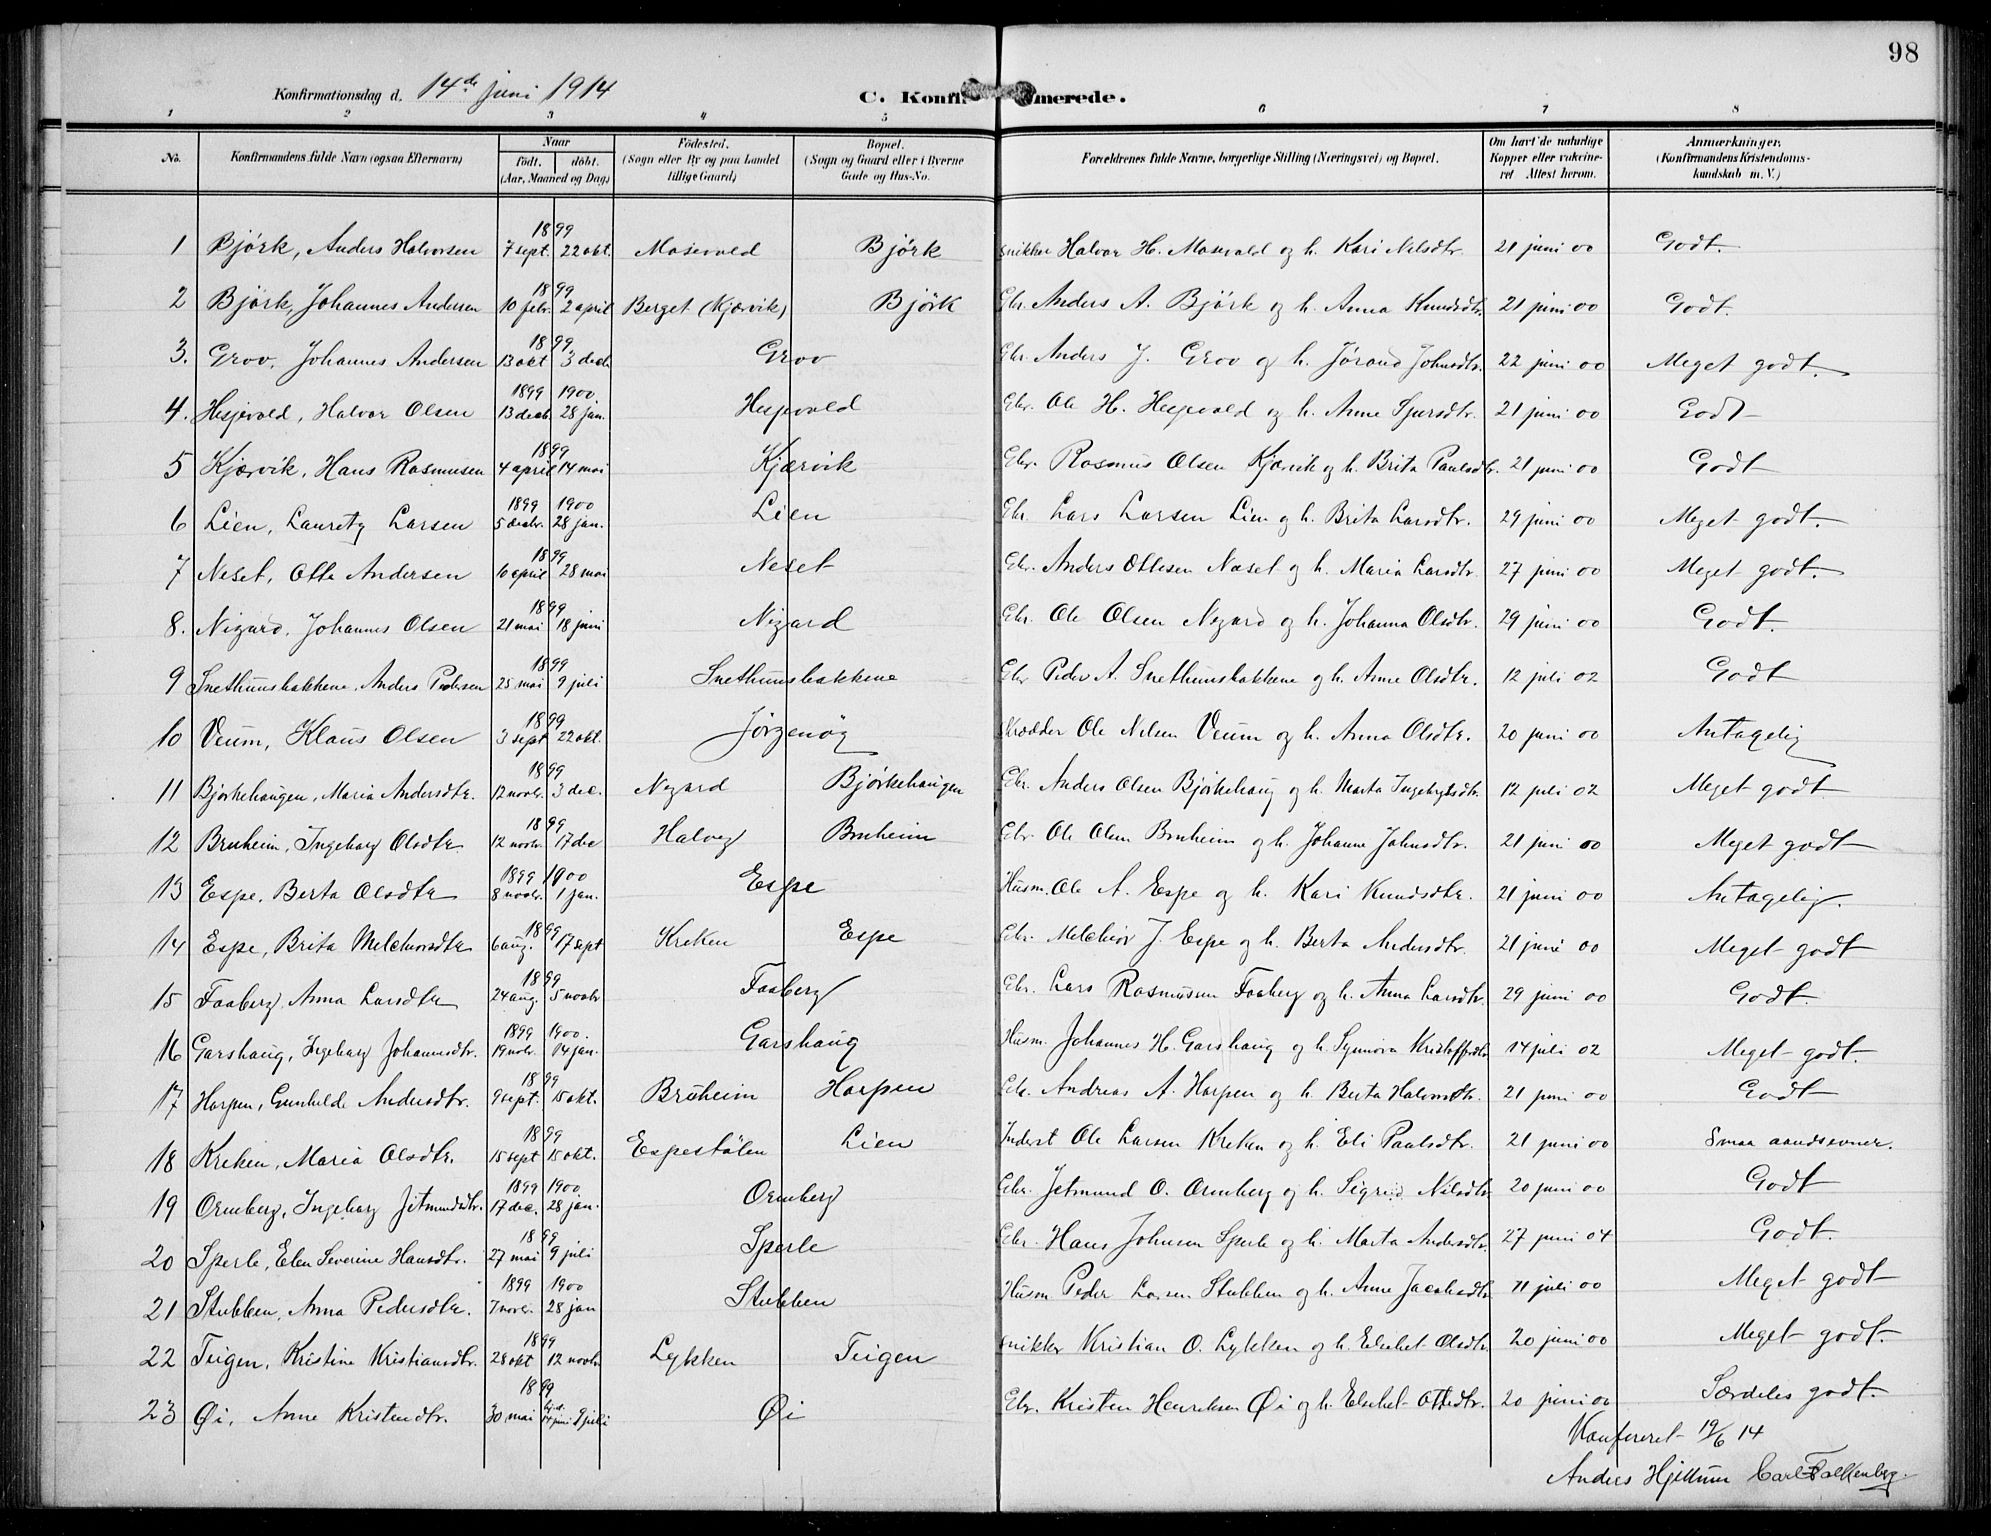 98
Konfirmationsdag d. 14de juni 1914
C. Konfirmerede.
1 2 3 4 5 6 7 8
No. Konfirmandens fulde Navn (ogsaa Efternavn) Naar født. døbt. (Aar, Maaned og Dag) Fødested. (Sogn eller By og paa Landet tillige Gaard) Bopæl. (Sogn og Gaard eller i Byerne Gade og Hus-No. Forældrenes fulde Navne, borgerlige Stilling (Næringsvei) og Bopæl. Om havt de naturlige Kopper eller vakcineret Attest herom. Anmærkninger. (Konfirmandens Kristendomskundskab m. V.)
1 Bjørk, Anders Halvorsen 1899 7 sept. 22 okt. Mosevold Bjørk snikker Halvor H. Mosevold og h. Kari Nilsdtr. 21 juni 00 Godt.
2 Bjørk, Johannes Andersen 1899 10 febr. 2 april Berget (Kjærvik) Bjørk Gbr. Anders A. Bjørk og h. Anna Knudsdtr. 21 juni 00 Godt.
3. Grov, Johannes Andersen 1899 13 okt 3 decb Grov Gbr. Anders J. Grov og h. Jørand Johnsdtr. 22 juni 00 Meget godt.
4. Hesjevold, Halvor Olsen 1899 1900 13 decb. 28 jan. Hesjevold Gbr. Ole H. Hesjevold og h. Anne Sjursdtr. 21 juni 00 Godt
5 Kjærvik, Hans Rasmusen 1899 4 april 14 mai Kjærvik Gbr. Rasmus Olsen Kjærvik og h. Brita Paulsdtr. 21 juni 00 Godt
6 Lien, Lauretz Larsen 1899 1900 5 decbr. 28 jan. Lien Gbr. Lars Larsen Lien og h. Brita Larsdtr. 29 juni 00 Meget godt.
7 Neset, Otte Andersen 1899 10 april 28 mai Neset Gbr. Anders Ottesen Neset og h. Maria Larsdtr. 27 juni 00 Meget godt.
8. Nigard, Johannes Olsen 1899 21 mai 18 juni Nigard Gbr. Ole Olsen Nigard og h. Johanna Olsdtr. 29 juni 00 Godt.
9 Snethunsbakkene, Anders Pedersen 1899 25 mai 9 juli Snethunsbakkene Gbr Peder A. Snethunsbakkene og h. Anne Olsdtr. 12 juli 02 Godt
10 Veum, Klaus Olsen 1899 3 sept 22 okt. Jørgenøy skrædder Ole Nelsen Veum og h. Anna Olsdtr. 20 juni 00 Antagelig
11 Bjørkehaugen, Maria Andersdtr. 1899 12 novbr. 3 dec. Nygard Bjørkehaugen Gbr. Anders Olsen Bjørkehaug og h. Marta Ingebrigtsdtr. 12 juli 02 Meget godt.
12 Bruheim, Ingeborg Olsdtr. 1899 12 novbr. 17 dec Halveg Bruheim Gbr. Ole Olsen Bruheim og h. Johanne Johnsdtr. 21 juni 00 Meget godt
13 Espe, Berta Olsdtr 1899 1900 8 novbr. 1 jan. Espe Husm. Ole A. Espe og h. Kari Knudsdtr. 21 juni 00 Antagelig.
14 Espe, Brita Melchiorsdtr 1899 6 aug. 17 sept Kreken Espe Gbr. Melchior J. Espe og h. Berta Andersdtr. 21 juni 00 Meget godt
15 Faaberg, Anna Larsdtr 1899 24 aug. 5 novbr Faaberg Gbr. Lars Rasmusen Faaberg og h. Anna Larsdtr. 29 juni 00 Godt.
16 Garshaug, Ingeborg Johannesdtr. 1899 1900. 19 novbr. 14 jan. Garshaug Husm. Johannes H. Garshaug og h. Synnøva Kristoffersdtr 14 juli 02 Meget godt.
17 Harpen, Gunhilde Andersdtr. 1899 9 sept. 15 okt. Bruheim Harpen Gbr. Andreas A. Harpen og h. Berta Halvorsdtr. 21 juni 00 Godt
18 Kreken, Maria Olsdtr. 1899 15 sept 15 okt. Espestølen Lien Inderst Ole Larsen Kreken og h. Eli Paulsdtr. 21 juni 00 Smaa aandsevner.
19 Ormberg, Ingeborg Jetmundsdtr. 1899 1900 17 dec. 28 jan. Ormberg Gbr. Jetmund O. Ormberg og h. Sigrid Nilsdtr 20 juni 00 Godt
20 Sperle, Elen Severine Hansdtr. 1899 27 mai 9 juli Sperle Gbr. Hans Johnsen Sperle og h. Marta Andersdtr. 27 juni 04 Godt.
21 Stubben, Anna Pedersdtr. 1899 1900 7 novbr. 28 jan Stubben Husm Peder Larsen Stubben og h. Anne Jacobsdtr 11 juli 00 Meget godt
22 Teigen, Kristine Kristiansdtr. 1899 28 okt 12 novbr Lykken Teigen snikker Kristian O. Lykken og h. Elsebet Olsdtr. 20 juni 00 Meget godt.
23 Øi, Anne Kristendtr. 1899 30 mai 14 juni 9 juli Øi Gbr. Kristen Henriksen Øi og h. Elsebet Ottesdtr. 20 juni 00 Særdeles godt.
Konfereret 19/6 14
Anders Hjellum Carl Falkenberg.